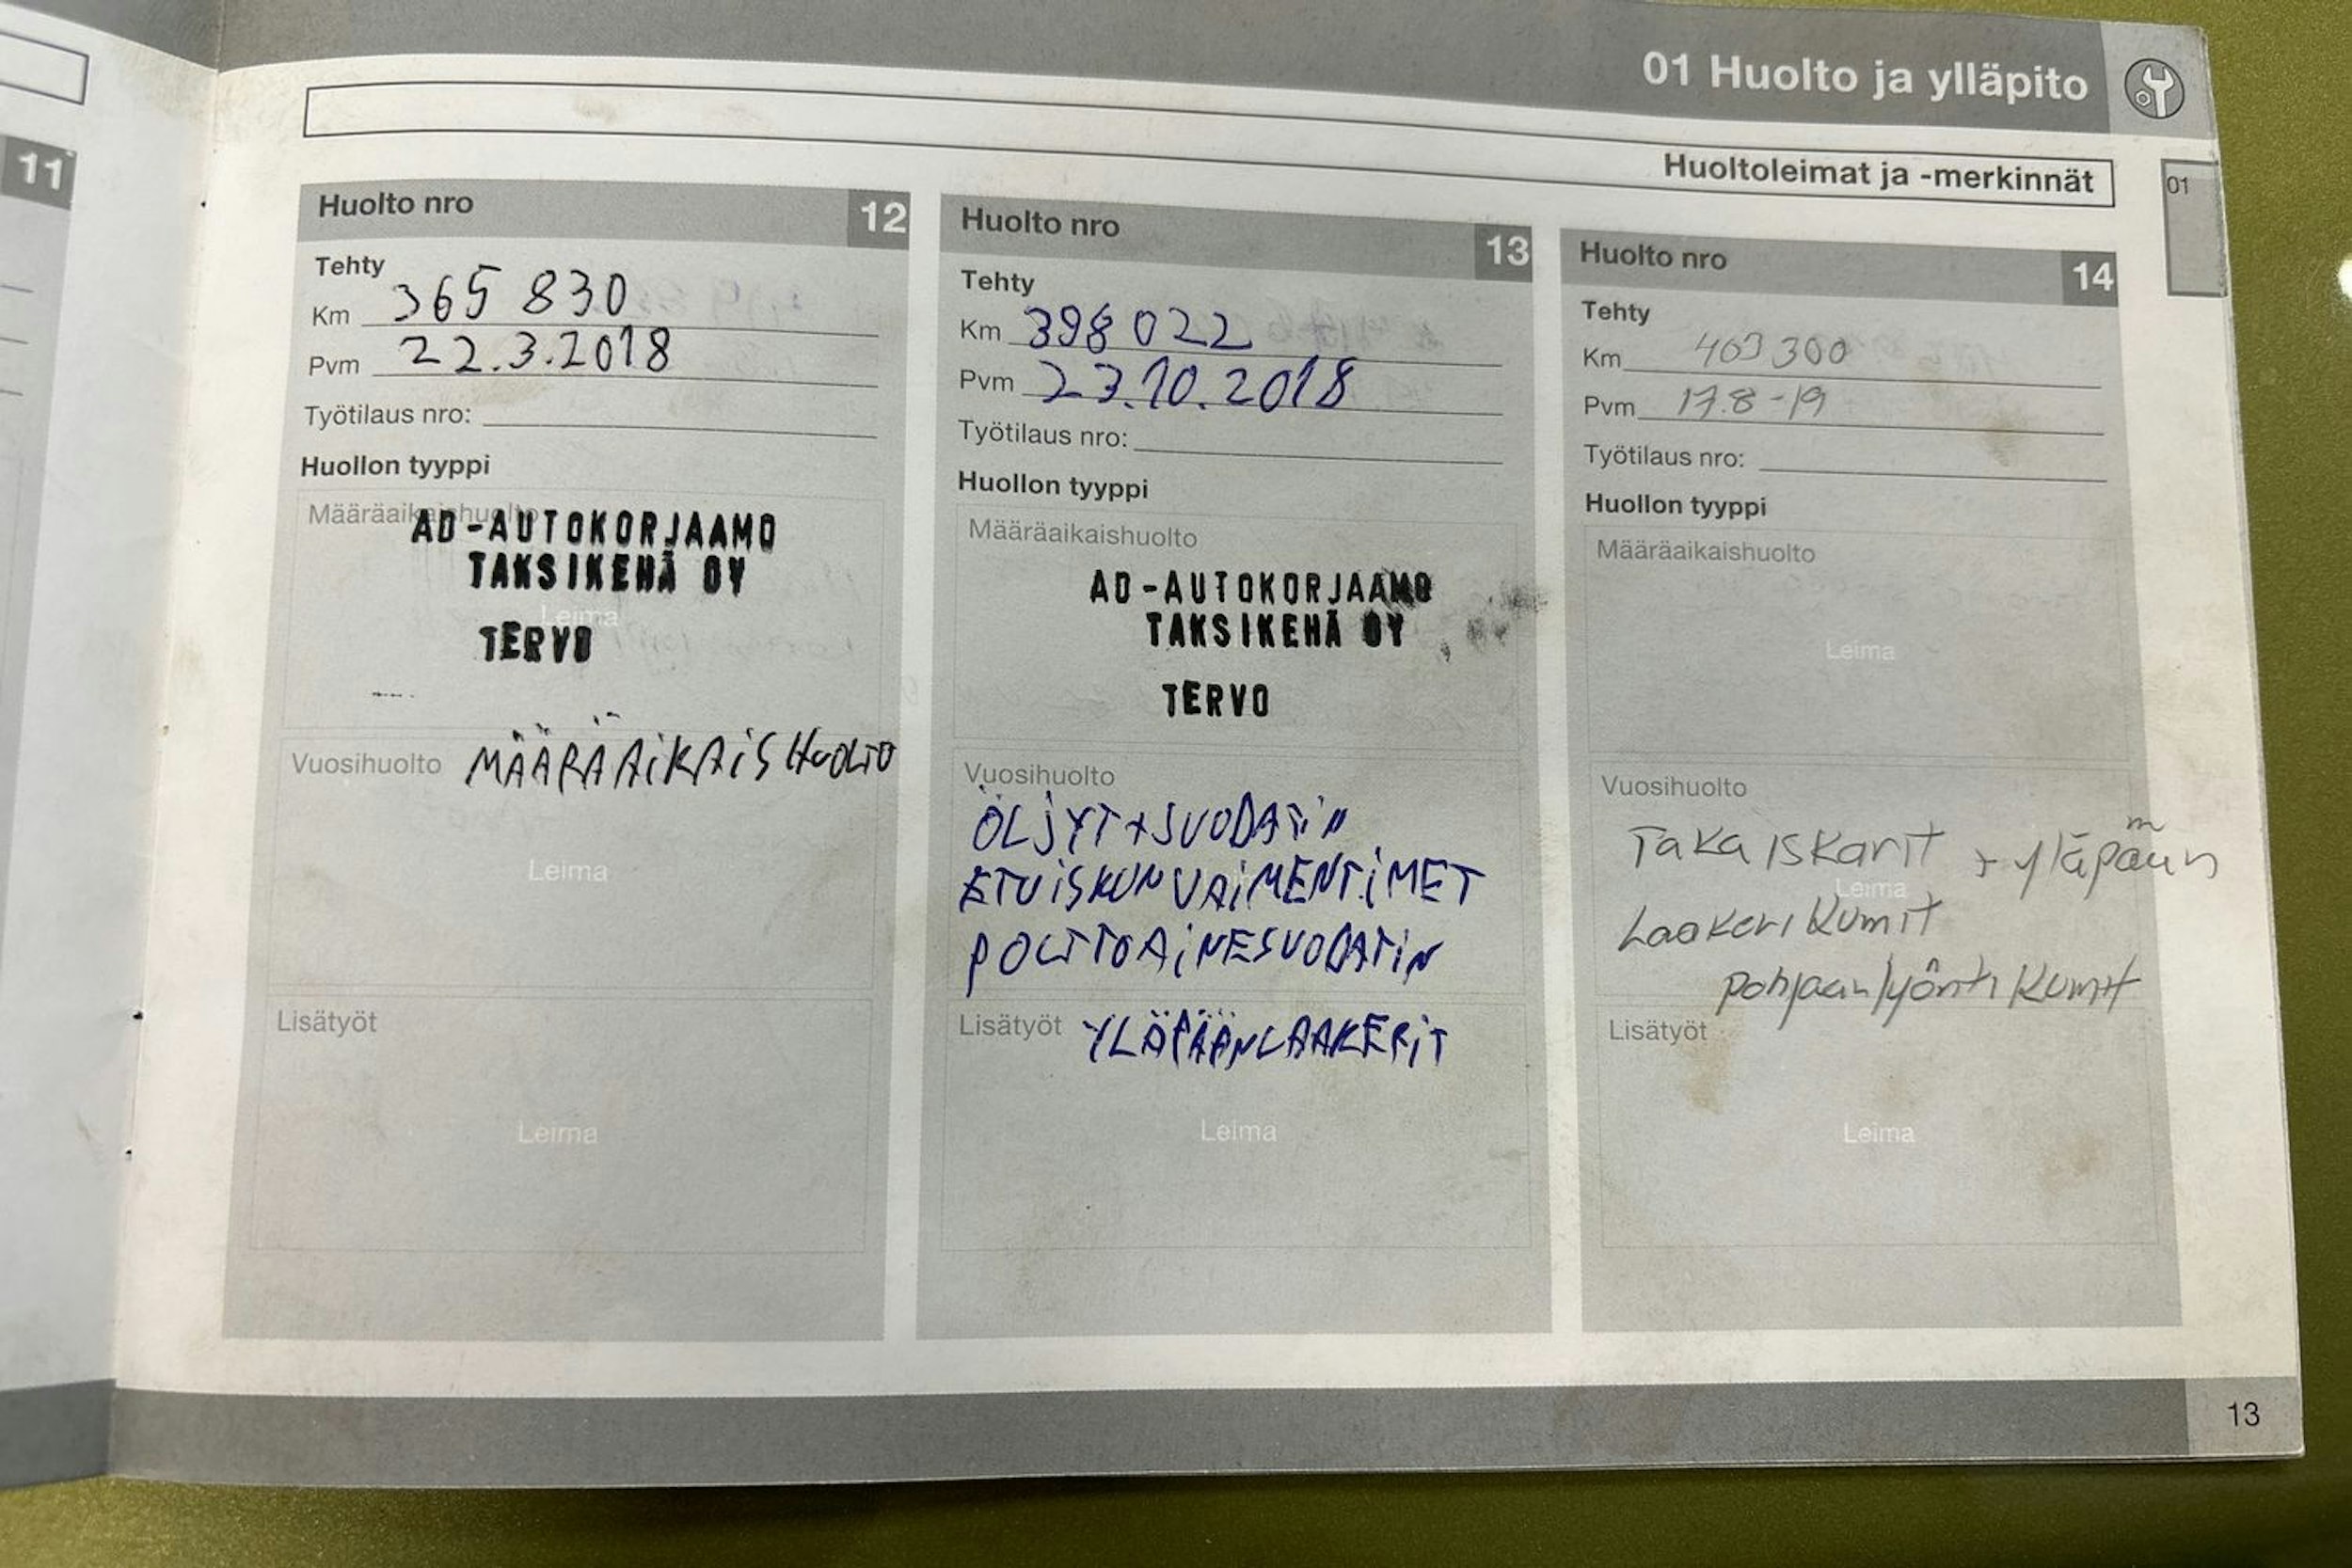 01 Huolto ja ylläpito
Huoltoleimat ja -merkinnät
01
11
Huolto nro 12
Tehty
Km 365 830
Pvm 22.3.2018
Työtilaus nro:
Huollon tyyppi
Määräaikaishuolto
AD-AUTOKORJAAMO
TAKSIKEHÄ OY
Leima
TERVO
Vuosihuolto MÄÄRÄAIKAISHUOLTO
Leima
Lisätyöt
Leima
Huolto nro 13
Tehty
Km 398 022
Pvm 23.10.2018
Työtilaus nro:
Huollon tyyppi
Määräaikaishuolto
AD-AUTOKORJAAMO
TAKSIKEHÄ OY
TERVO
Vuosihuolto
ÖLJYT+SUODATIN
ETUISKUNVAIMENTIMET
POLTTOAINESUODATIN
Lisätyöt YLÄPÄÄNLAAKERIT
Leima
Huolto nro 14
Tehty
Km 403 300
Pvm 17.8-19
Työtilaus nro:
Huollon tyyppi
Määräaikaishuolto
Leima
Vuosihuolto
Taka iskarit + yläpään
Leima
Laakeri kumit
pohjaanlyönti kumit
Lisätyöt
Leima
13